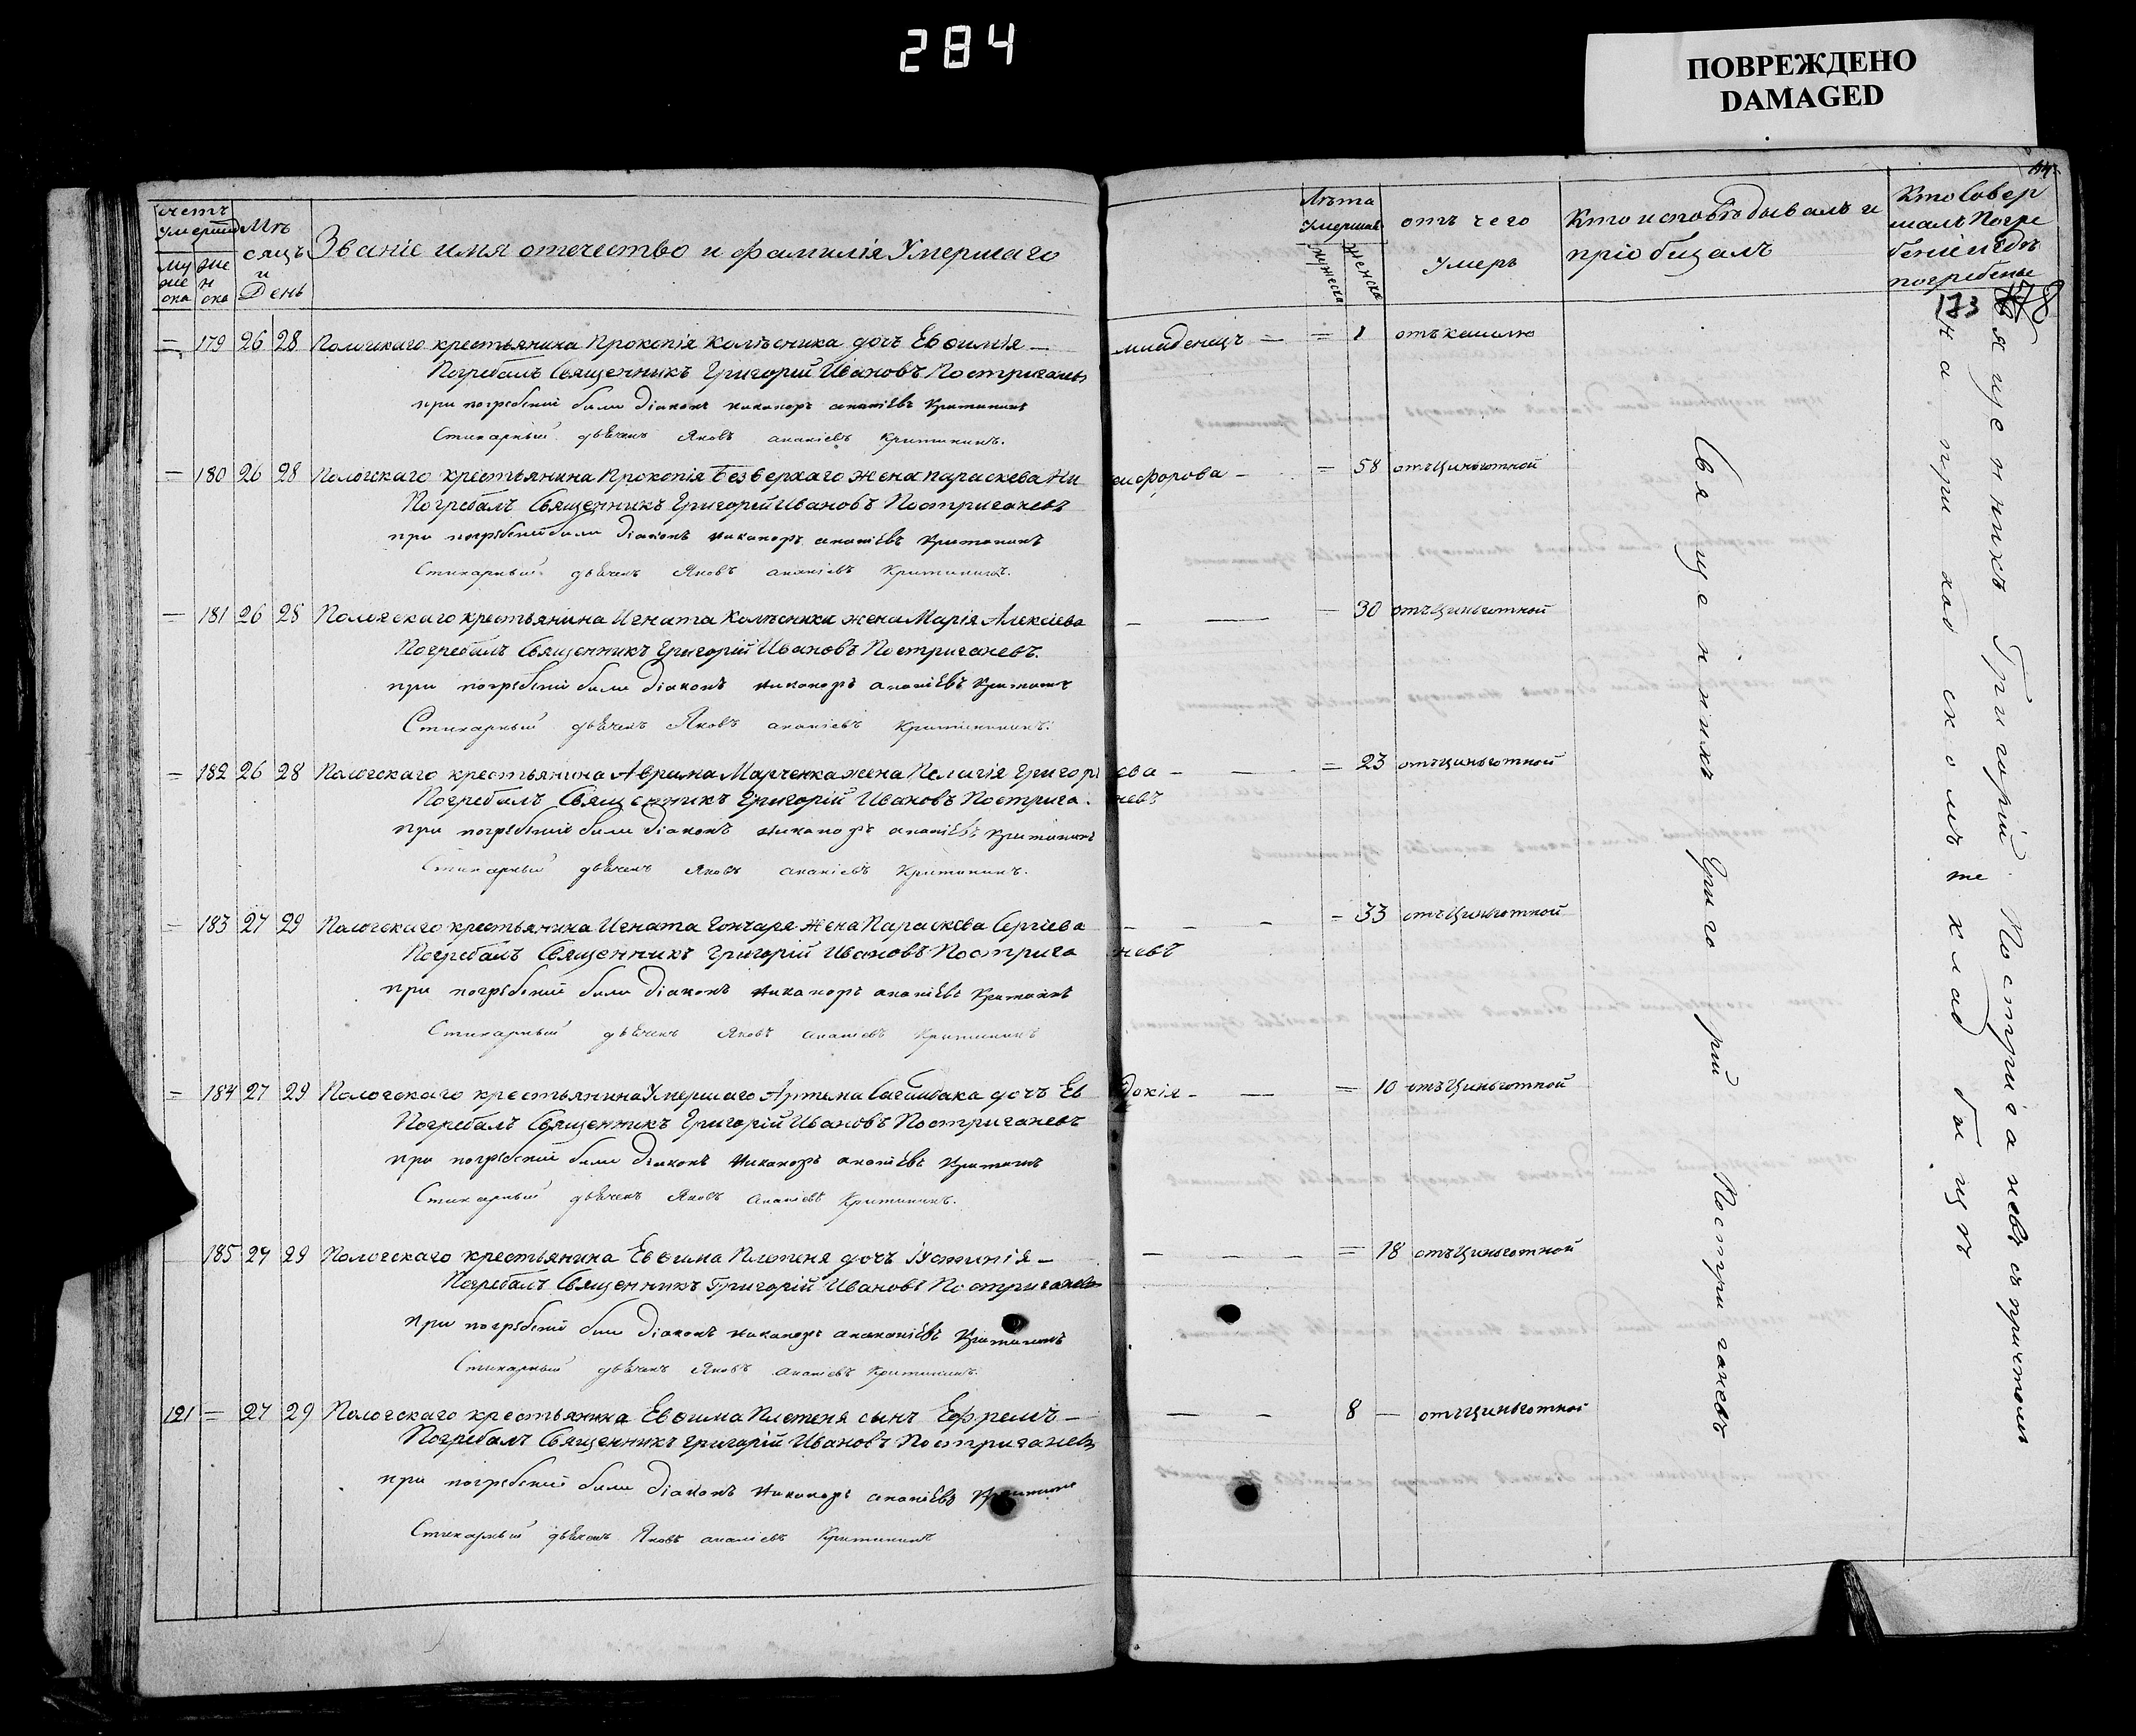 284
ПОВРЕЖДЕНО
DAMAGED
счетъ умерши
муж ска
жен ска
Мѣсяцъ и День
Званіе имя отечество и фамилія Умершаго
Лѣта Умерших
мужеска
женска
отъ чего Умеръ
Кто исповѣдывалъ и пріобщалъ
Кто Совер
шалъ Погре
беніе и гдѣ
погребены
173 178
= 179 26 28 Пологскаго крестьянина Прокопія Колѣсника дочь Евѳимія — младенецъ — = 1 отъ кашлю
Погребалъ Священникъ Григорій Ивановъ Постриганевъ
при погребеніи были Діаконъ Никаноръ ананіевъ Критининъ
Стихарный дьячекъ Яковъ ананіевъ Критининъ.
= 180 26 28 Пологскаго крестьянина Прокопія Безверхаго жена параскева Никифорова — = 58 отъ Циньготной
Погребалъ Священникъ Григорій Ивановъ Постриганевъ
при погребеніи были Діаконъ Никаноръ ананіевъ Критининъ
Стихарный дьячекъ Яковъ ананіевъ Критининъ.
— 181 26 28 Пологскаго крестьянина Игната Колѣсника жена Марія Алексіева — — — 30 отъ Циньготной
Погребалъ Священникъ Григорій Ивановъ Постриганевъ.
при погребеніи были Діаконъ Никаноръ ананіевъ Критининъ
Стихарный дьячекъ Яковъ ананіевъ Критининъ.
= 182 26 28 Пологскаго крестьянина Аврама Марченка жена Пелагія Григоріева — — = 23 отъ циньготной
Погребалъ Священникъ Григорій Ивановъ Постриганевъ
при погребеніи были Діаконъ Никаноръ ананіевъ Критининъ
Стихарный дьячекъ Яковъ ананіевъ Критининъ.
= 183 27 29 Пологскаго крестьянина Игната Гончаря жена Параскева Сергіева — — — = 33 отъ Циньготной
Погребалъ Священникъ Григорій Ивановъ Постриганевъ
при погребеніи были Діаконъ Никаноръ ананіевъ Критининъ
Стихарный дьячекъ Яковъ ананіевъ Критининъ
= 184 27 29 Пологскаго крестьянина Умершаго Артема дочь Евдокія — — = 10 отъ Циньготной
Погребалъ Священникъ Григорій Ивановъ Постриганевъ
при погребеніи были Діаконъ Никаноръ ананіевъ Критининъ
Стихарный дьячекъ Яковъ ананіевъ Критининъ.
185 27 29 Пологскаго крестьянина Евѳима Плетеня дочь — — — — = 18 отъ Циньготной
Погребалъ Священникъ Григорій Ивановъ Постриганевъ
при погребеніи были Діаконъ Никаноръ ананіевъ Критининъ
Стихарный дьячекъ Яковъ ананіевъ Критининъ.
121 = 27 29 Пологскаго крестьянина Евѳима Плетеня сынъ Ефремъ — — — 8 — отъ циньготной
Погребалъ Священникъ Григорій Ивановъ Постриганевъ
при погребеніи были Діаконъ Никаноръ ананіевъ Критининъ
Стихарный дьячекъ Яковъ ананіевъ Критининъ
Священникъ Григорій Постриганевъ
Священникъ Григорій Постриганевъ съ причтомъ
на приходскомъ же кладбищѣ